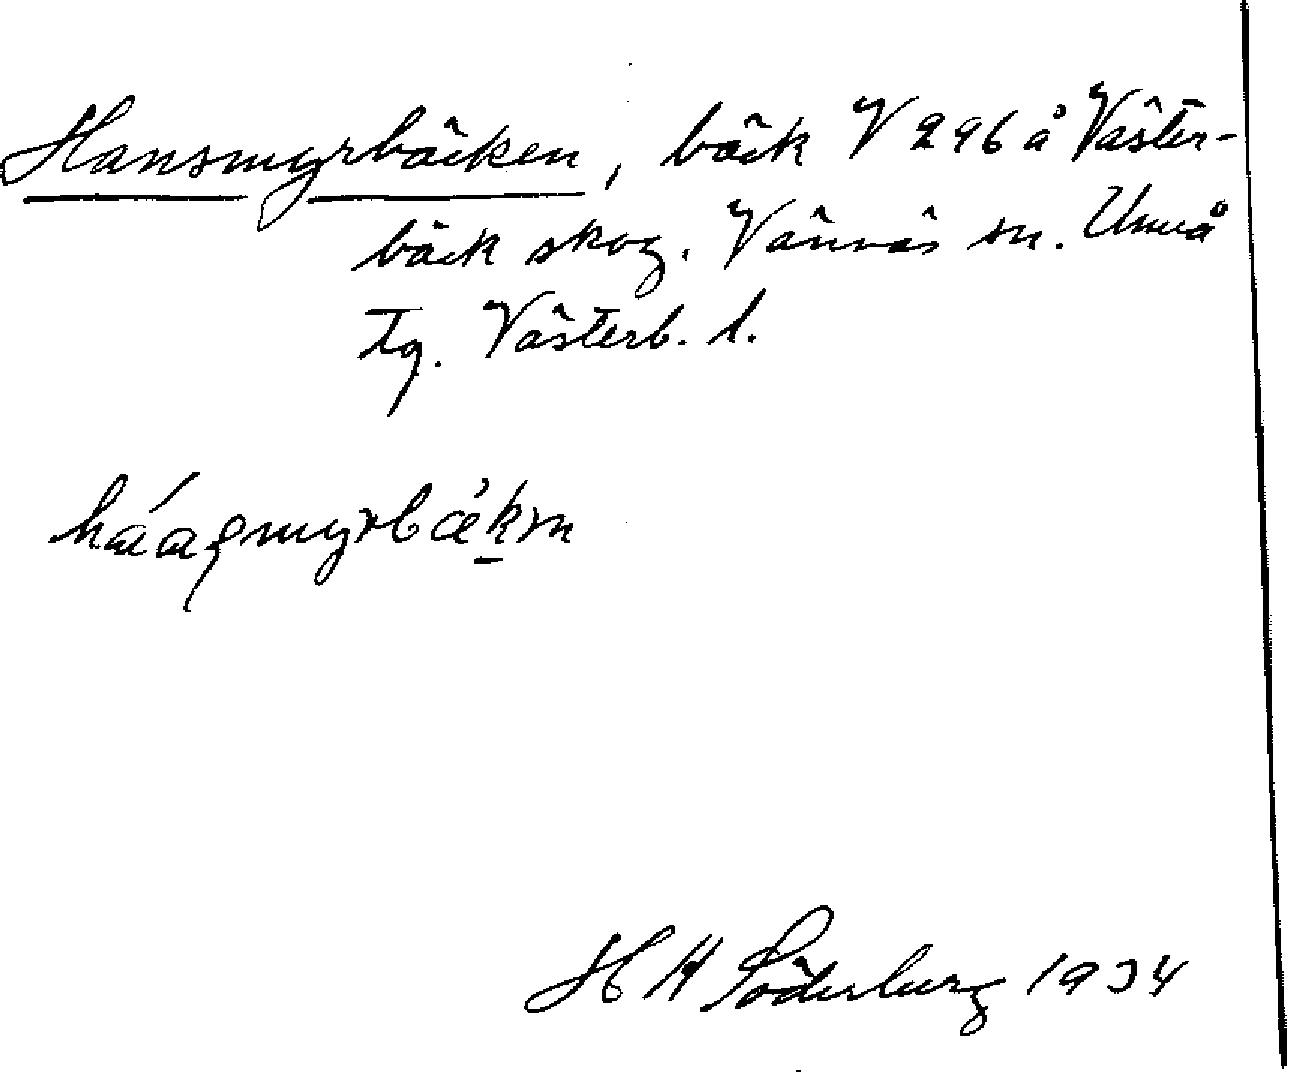 Hansmyrbäcken, bäck V 296 å Väster-
bäck skog. Vännäs sn. Umeå
tg. Västerb. l.
H H Söderberg 1934